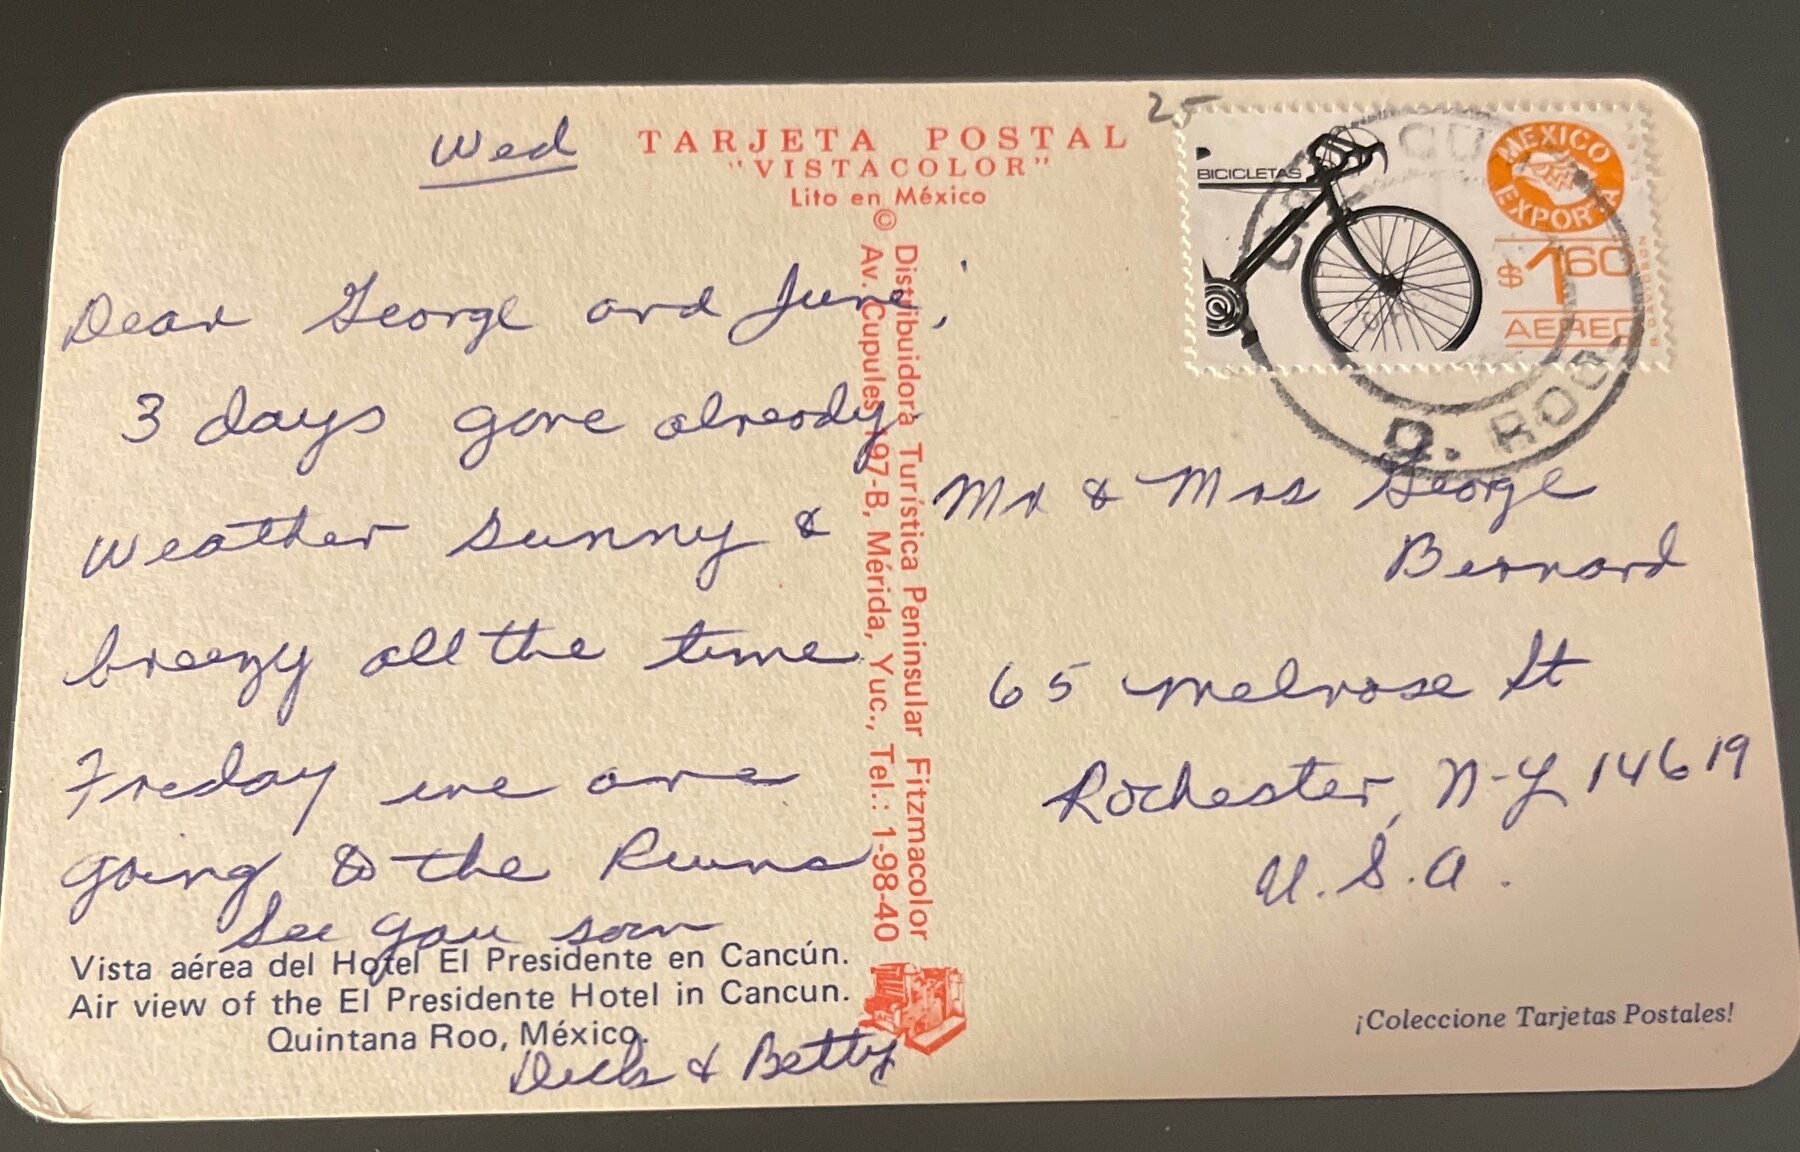 Wed
TARJETA POSTAL
"VISTACOLOR"
Lito en México
©
Distribuidora Turística Peninsular Fitzmacolor
Av. Cupules 197-B, Mérida, Yuc., Tel.: 1-98-40
Dear George and June,
3 days gone already
Weather sunny &
breezy all the time
Friday we are
going to the Ruins
See you soon
Vista aérea del Hotel El Presidente en Cancún.
Air view of the El Presidente Hotel in Cancun.
Quintana Roo, México.
Dick & Betty
25
BICICLETAS
MEXICO
EXPORTA
$1.60
AEREO
Q. ROO.
Mr & Mrs George
Bernard
65 Melrose St
Rochester, N-Y 14619
U.S.A.
¡Coleccione Tarjetas Postales!